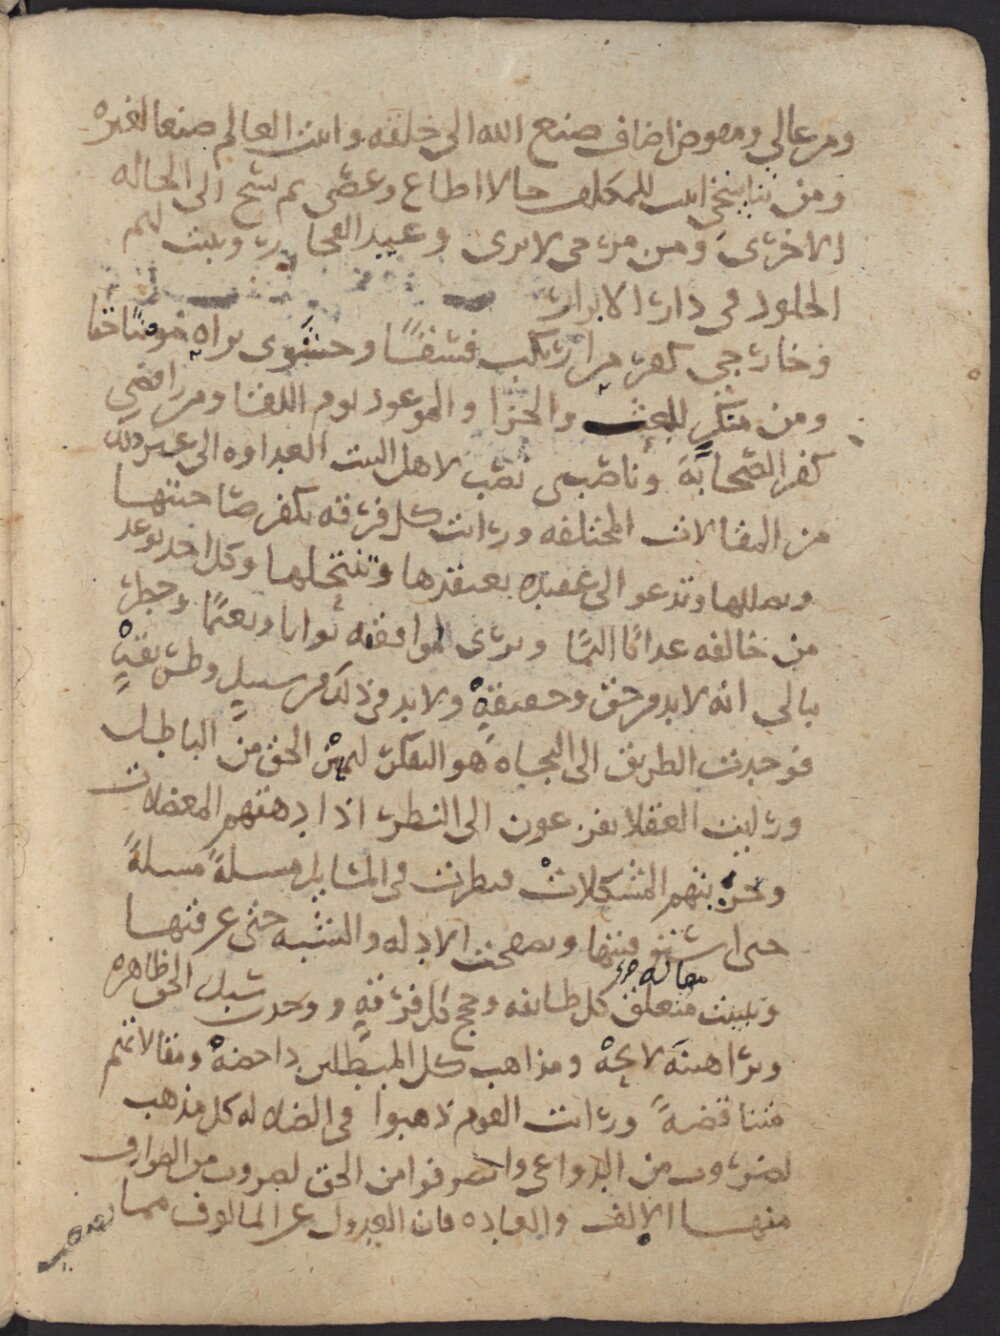 ومن غالي ومفوض اضاف صنع الله الى خلقه واثبت العالم صنعا لغيره
ومن تناسخي اثبت للمكلف حالا اطاع وعصى ثم نسخ الى الحاله
الاخرى ومن مرجى لا يرى وعيد الفجار ويثبت لهم
الخلود في دار الابرار
وخارجي كفر من ارتكب فسقًا وحشوى يراه مومنًا حقا
ومن منكر للبعث والجزا والموعود يوم اللقا ومن رافضي
كفر الصحابة وناصبى نصب لاهل البيت العداوه الى غير ذلك
من المقالات المختلفه ورايت كل فرقه تكفر صاحبتها
وتضللها وتدعو الى عقيده تعتقدها وتنتحلها وكل احد يوعد
من خالفه عدابًا اليمًا ويرى لموافقه ثوابا ونعيمًا وخطر
ببالي انه لا بد من حق وحقيقةٍ ولا بد في ذلك من سبيلٍ وطريقةٍ
فوجدت الطريق الى النجاه هو التفكر ليميز الحق من الباطل
ورايت العقلا يفزعون الى النظر اذا دهتهم المعضلات
وحزبتهم المشكلات فنظرت في المسايل مسلةً مسلةً
حتى استوفيتها وتصفحت الادله والشبه حتى عرفتها
وتبينت متعلق مقاله كل طايفه وحجج كل فرقةٍ ووجدت سبل الحق ظاهره
وبراهينه لايحة ومذاهب كل المبطلين داحضة ومقالاتهم
متناقضةً ورايت القوم ذهبوا في الضلاله كل مذهب
لضروب من الدواعي وانصرفوا من الحق لضروب من الصوارف
منها الالف والعاده فان العدول عن المالوف مما